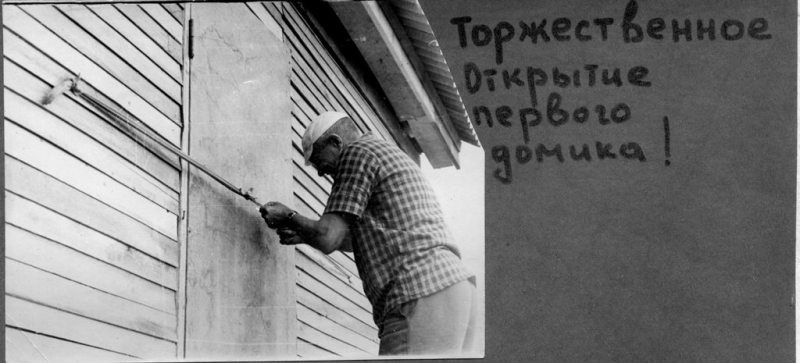 Торжественное
Открытие
первого
домика!